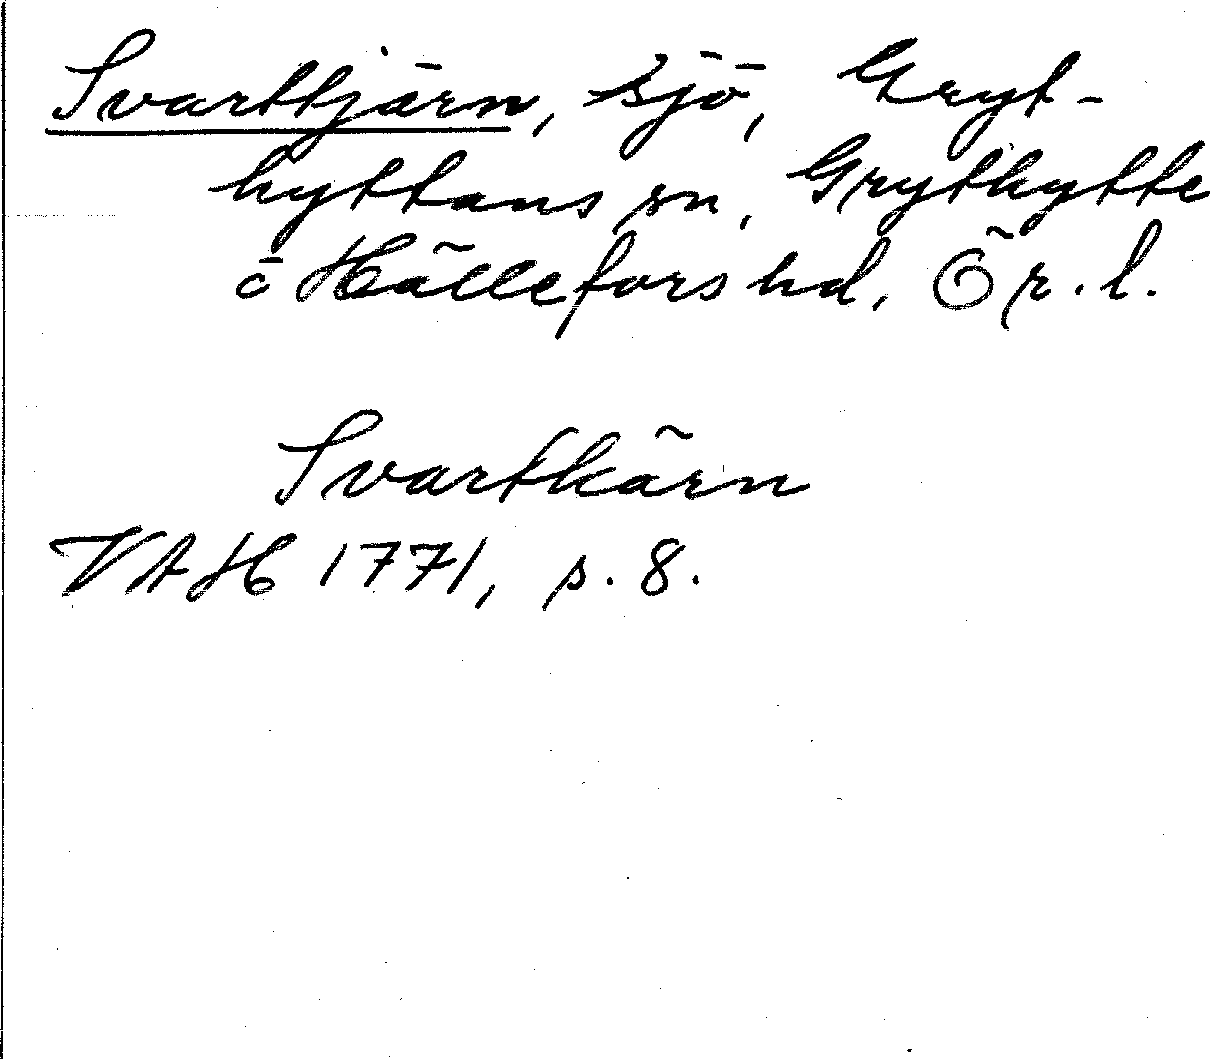 Svarttjärn, sjö, Gryt-
hyttans sn, Grythytte
o Hällefors hd, Ör. l.
Svartkärn
VAH 1771, s. 8.